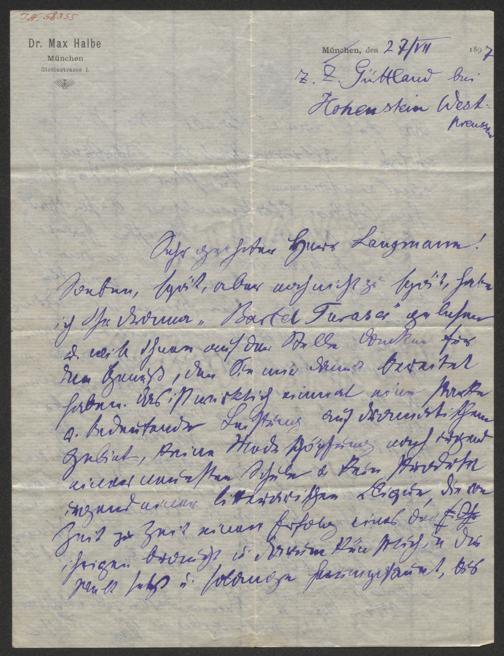 Dr. Max Halbe
München
München, den 27/VII 1897
z. Z. Güttland bei
Hohenstein West-
preussen
Sehr geehrter Herr Langmann!
Soeben, spät, aber noch nicht zu spät, habe
ich Ihr Drama „Bartel Turaser" gelesen
u. will Ihnen auf der Stelle danken für
den Genuß, den Sie mir damit bereitet
haben. Das ist wirklich einmal eine starke
u. bedeutende Leistung auf dramatischem
Gebiet, keine Modeschöpfung nach irgend
einer neuesten Schule u. kein Produkt
irgend einer literarischen Clique, die von
Zeit zu Zeit einen Erfolg eines der
ihrigen braucht u. darum künstlich in die